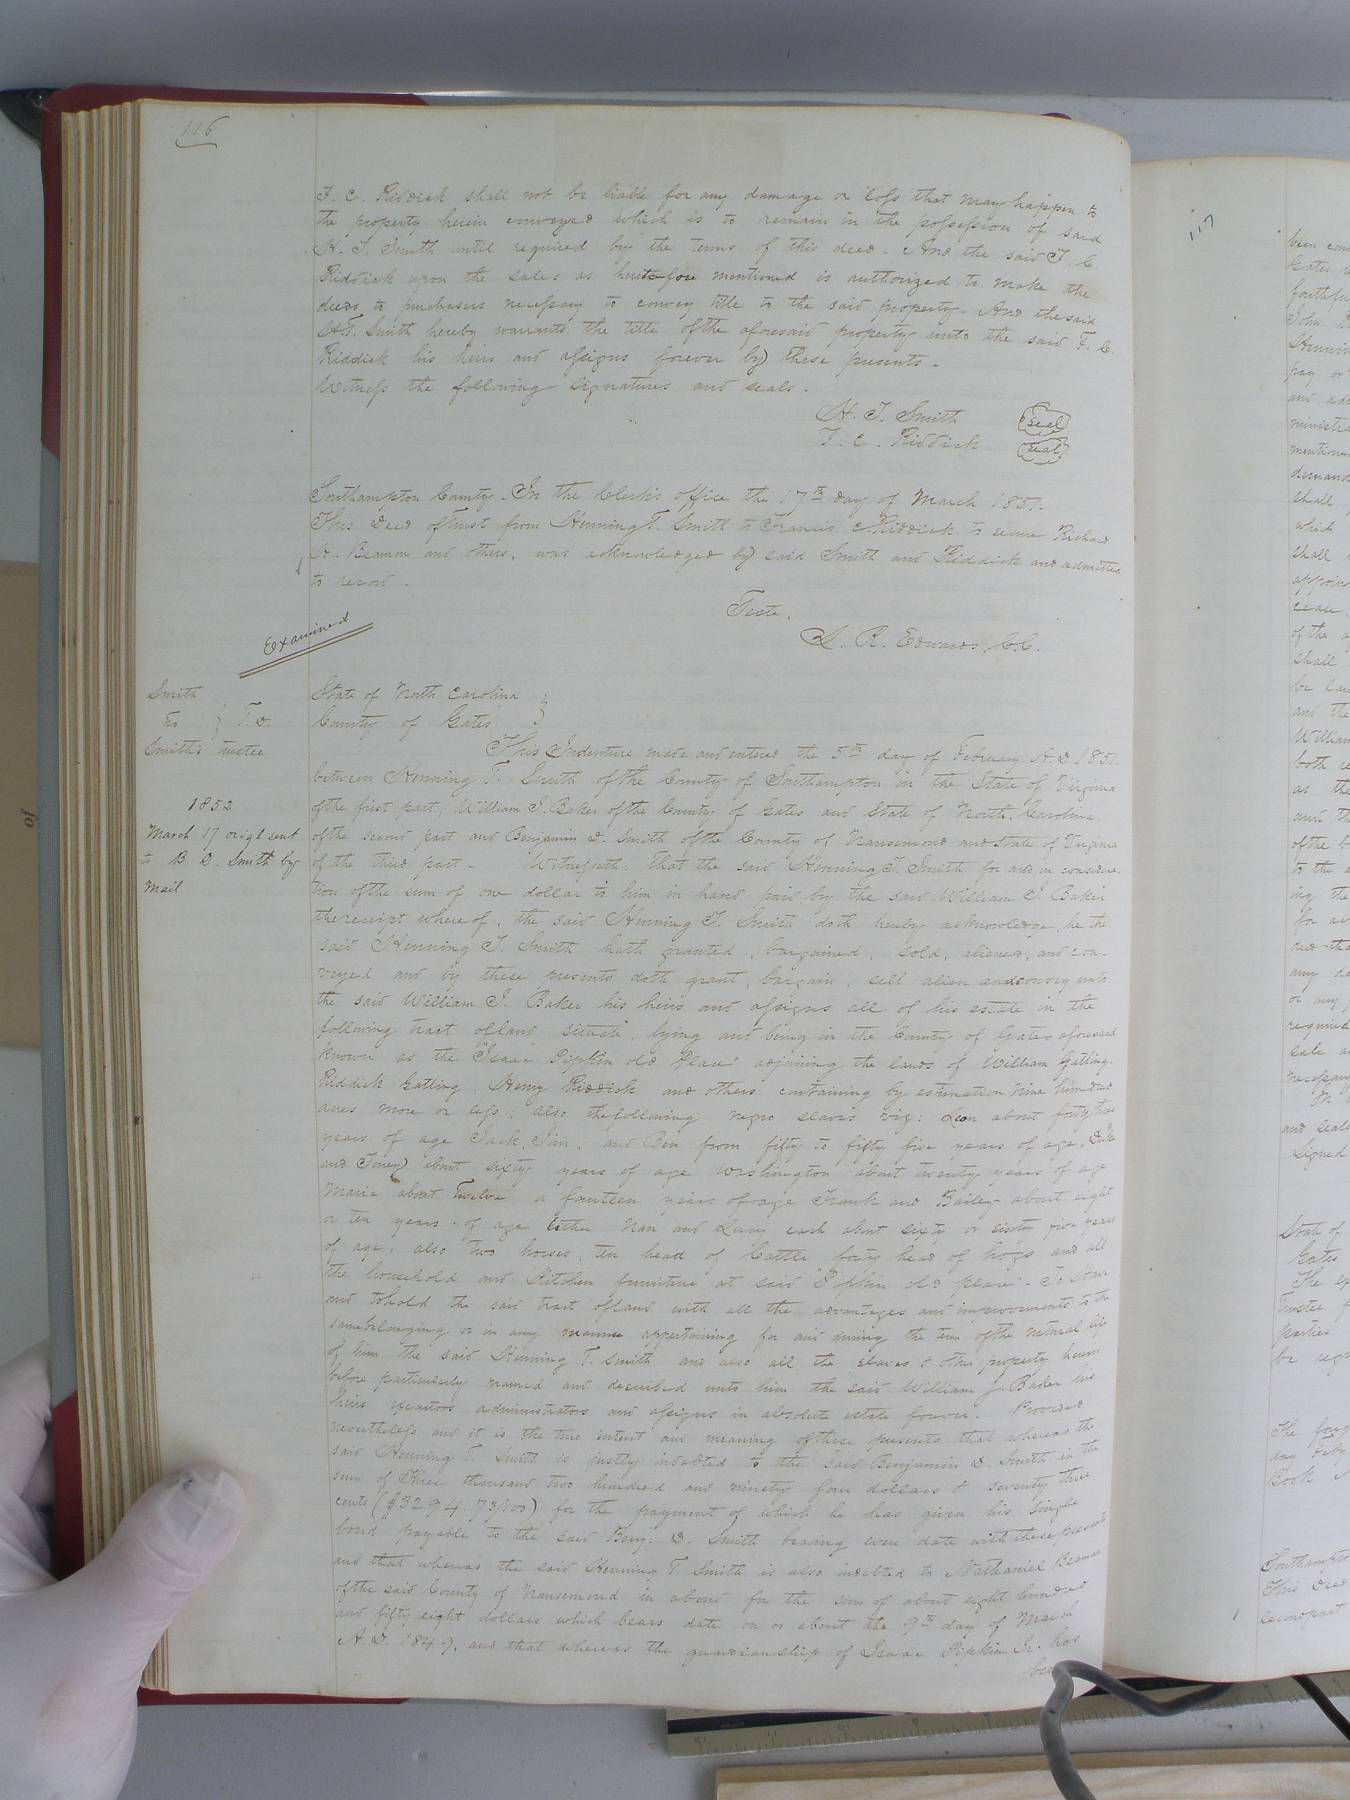 116
F. C. Riddick shall not be liable for any damage or loss that may happen to
the property herein conveyed which is to remain in the possession of said
H. T. Smith until required by the terms of this deed. And the said F. C.
Riddick upon the sales as heretofore mentioned is authorized to make the
deeds to purchasers necessary to convey title to the said property. And the said
H. T. Smith hereby warrants the title of the aforesaid property unto the said F. C.
Riddick his heirs and assigns forever by these presents.
Witness the following signatures and seals.
H. T. Smith seal
F. C. Riddick seal
Southampton County. In the Clerk's office the 17th day of March 1851.
This Deed of Trust from Henning T. Smith to Francis C. Riddick to secure Richard
H. Beamon and others, was acknowledged by said Smith and Riddick and admitted
to record.
Teste.
L. R. Edwards, C.C.
Examined
Smith
to } T. D.
Smith's trustee
1852
March 17 origl sent
to B. D. Smith by
Mail
State of North Carolina
County of Gates
This Indenture made and entered the 5th day of February A. D 1851
between Henning T. Smith of the County of Southampton in the State of Virginia
of the first part, William J. Baker of the County of Gates and State of North Carolina
of the second part and Benjamin D. Smith of the County of Nansemond and State of Virginia
of the third part. Witnesseth that the said Henning T. Smith for and in considera-
tion of the sum of one dollar to him in hand paid by the said William J. Baker
the receipt whereof, the said Henning T. Smith doth hereby acknowledge, he the
said Henning T. Smith hath granted, bargained, sold, aliened, and con-
veyed and by these presents doth grant, bargain, sell alien and convey unto
the said William J. Baker his heirs and assigns all of his estate in the
following tract of land situate, lying and being in the County of Gates aforesaid
known as the "Isaac Pipkin old place" adjoining the lands of William Gatling.
Riddick Gatling, Henry Riddick and others containing by estimation nine hundred
acres more or less; also the following negro slaves viz: Leon about forty three
years of age Jack, Jim, and Ben from fifty to fifty five years of age,
and Toney about sixty years of age Washington about twenty years of age
Maria about Twelve or fourteen years of age Frank and Bailey about eight
or ten years of age Esther Nan and Lucy each about sixty or sixty five years
of age, also two horses, ten head of Cattle forty head of hogs and all
the household and Kitchen furniture at said "Pipkin old place". To have
and to hold the said tract of land with all the advantages and improvements to the
same belonging or in any manner appertaining for and during the term of the natural life
of him the said Henning T. Smith and also all the slaves & other property herein
before particularly named and described unto him the said William J. Baker his
heirs executors administrators and assigns in absolute estate forever. Provided
nevertheless and it is the true intent and meaning of these presents that whereas the
said Henning T. Smith is justly indebted to the said Benjamin D. Smith in the
sum of Three thousand two hundred and ninety four dollars & seventy three
cents ($3294.73/100) for the payment of which he has given his single
bond payable to the said Benj: D. Smith bearing even date with these presents
and that whereas the said Henning T. Smith is also indebted to Nathaniel Beaman
of the said County of Nansemond in a bond for the sum of about eight hundred
and fifty eight dollars which bears date on or about the 9th day of March
A. D. 1849, and that whereas the guardianship of Isaac Pipkin Jr. has
117
Gates
faithful
John
Henning
pay or
and
mention
demand
shall
which
shall
appoint
of the
shall
and the
William
both
as the
of the
to the
ing the
any
or any
required
sale
necessary
and seals
Signed
State of
Gates
Trustee
parties
The
day Feby
Book
Southampton
This Deed
second part
of